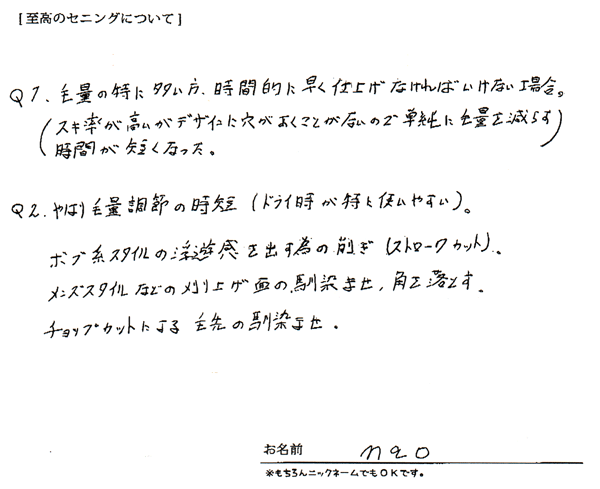 [至高のセニングについて]
Q1. 毛量の特に多い方、時間的に早く仕上げなければいけない場合。
(スキ率が高いがデザインに穴があくことがないので単純に毛量を減らす
時間が短くなった。)
Q2. やはり毛量調節の時短(ドライ時が特に使いやすい)。
ボブ系スタイルの浮遊感を出す為の削ぎ(ストロークカット)、
メンズスタイルなどの刈り上げ面の馴染ませ、角を落とす。
チョップカットによる毛先の馴染ませ。
お名前 nao
※もちろんニックネームでもOKです。